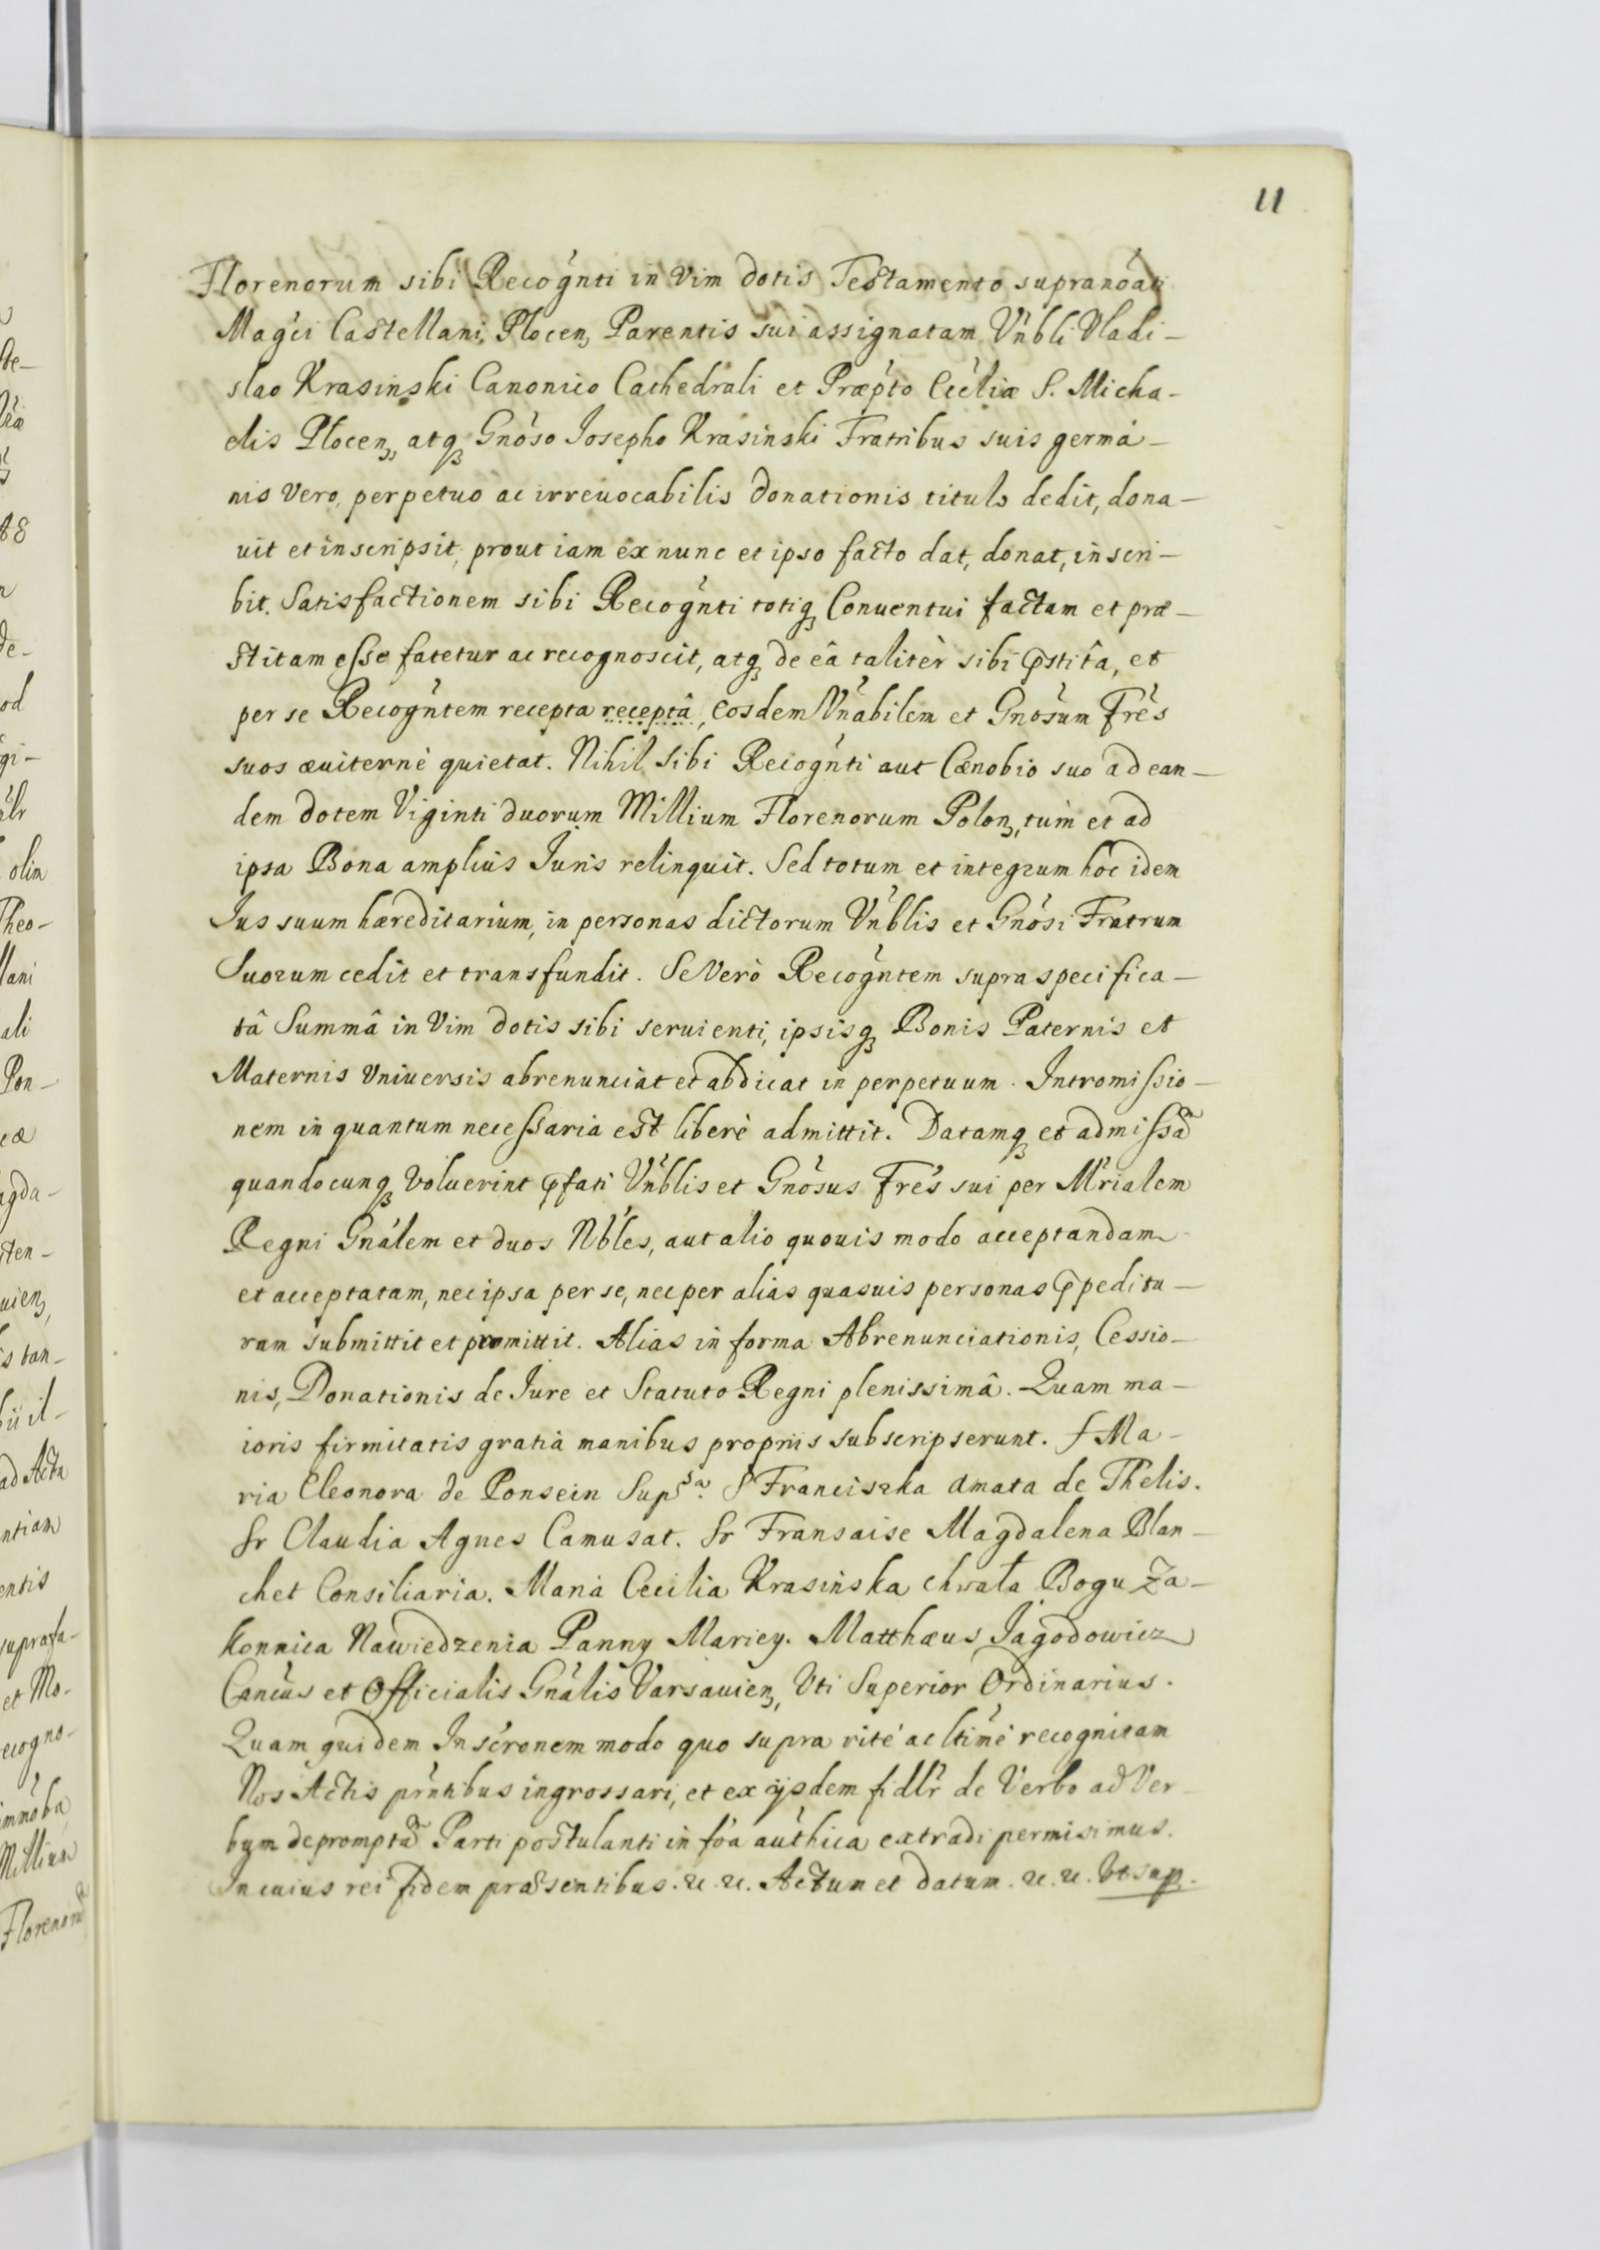 11
Florenorum sibi Recognti in Vim dotis Testamento supranoati
Magci Castellani Plocen, Parentis sui assignatam Vnbli Vladi-
slao Krasinski Canonico Cathedrali et Præpto Ecclæ S. Micha-
elis Plocen, atq Gnoso Josepho Krasinski Fratribus suis germa-
nis Vero, perpetuo ac irreuocabilis donationis titulo dedit, dona-
uit et inscripsit, prout iam ex nunc et ipso facto dat, donat, inscri-
bit. Satisfactionem sibi Recognti totiq Conuentui factam et præ-
stitam esse fatetur ac recognoscit, atq de eâ taliter sibi pstitâ, et
per se Recogntem recepta receptâ, eosdem Vnabilem et Gnosum Frés
suos æuiternè quietat. Nihil sibi Recognti aut Cænobio suo ad ean-
dem dotem Viginti duorum Millium Florenorum Polon, tùm et ad
ipsa Bona amplius Juris relinquit. Sed totum et integrum hoc idem
Jus suum hæreditarium, in personas dictorum Vnblis et Gnosi Fratrum
Suorum cedit et transfundit. Se Verò Recogntem supra specifica-
tâ Summâ in Vim dotis sibi seruienti, ipsisq Bonis Paternis et
Maternis Vniuersis abrenunciat et abdicat in perpetuum. Intromissio-
nem in quantum necessaria est liberè admittit. Datamq et admissã
quandocunq Voluerint pfati Vnblis et Gnosus Frés sui per Mrialem
Regni Gnalem et duos Nbles, aut alio quouis modo acceptandam
et acceptatam, nec ipsa per se, nec per alias quasuis personas ppeditu-
ram submittit et promittit. Alias in forma Abrenunciationis, Cessio-
nis, Donationis de Jure et Statuto Regni plenissimâ. Quam ma-
ioris firmitatis gratia manibus proprijs subscripserunt. S Ma-
ria Eleonora de Ponsein Supsa. S Franciszka Amata de Thelis.
Sr Claudia Agnes Camusat. Sr Fransaise Magdalena Blan-
chet Consiliaria. Maria Cecilia Krasinska chwała Bogu Za-
konnica Nawiedzenia Panny Mariey. Matthæus Jagodowicz
Cancus et Officialis Gnalis Varsauien, Vti Superior Ordinarius.
Quam quidem Inscronem modo quo supra ritè ac ltimè recognitam
Nos Actis prntibus ingrossari, et ex ijsdem fidlr de Verbo ad Ver-
bum depromptã Parti postulanti in foa authica extradi permisimus.
In cuius rei fidem præsentibus. &. &. Actum et datum. &. &. Vt sup.